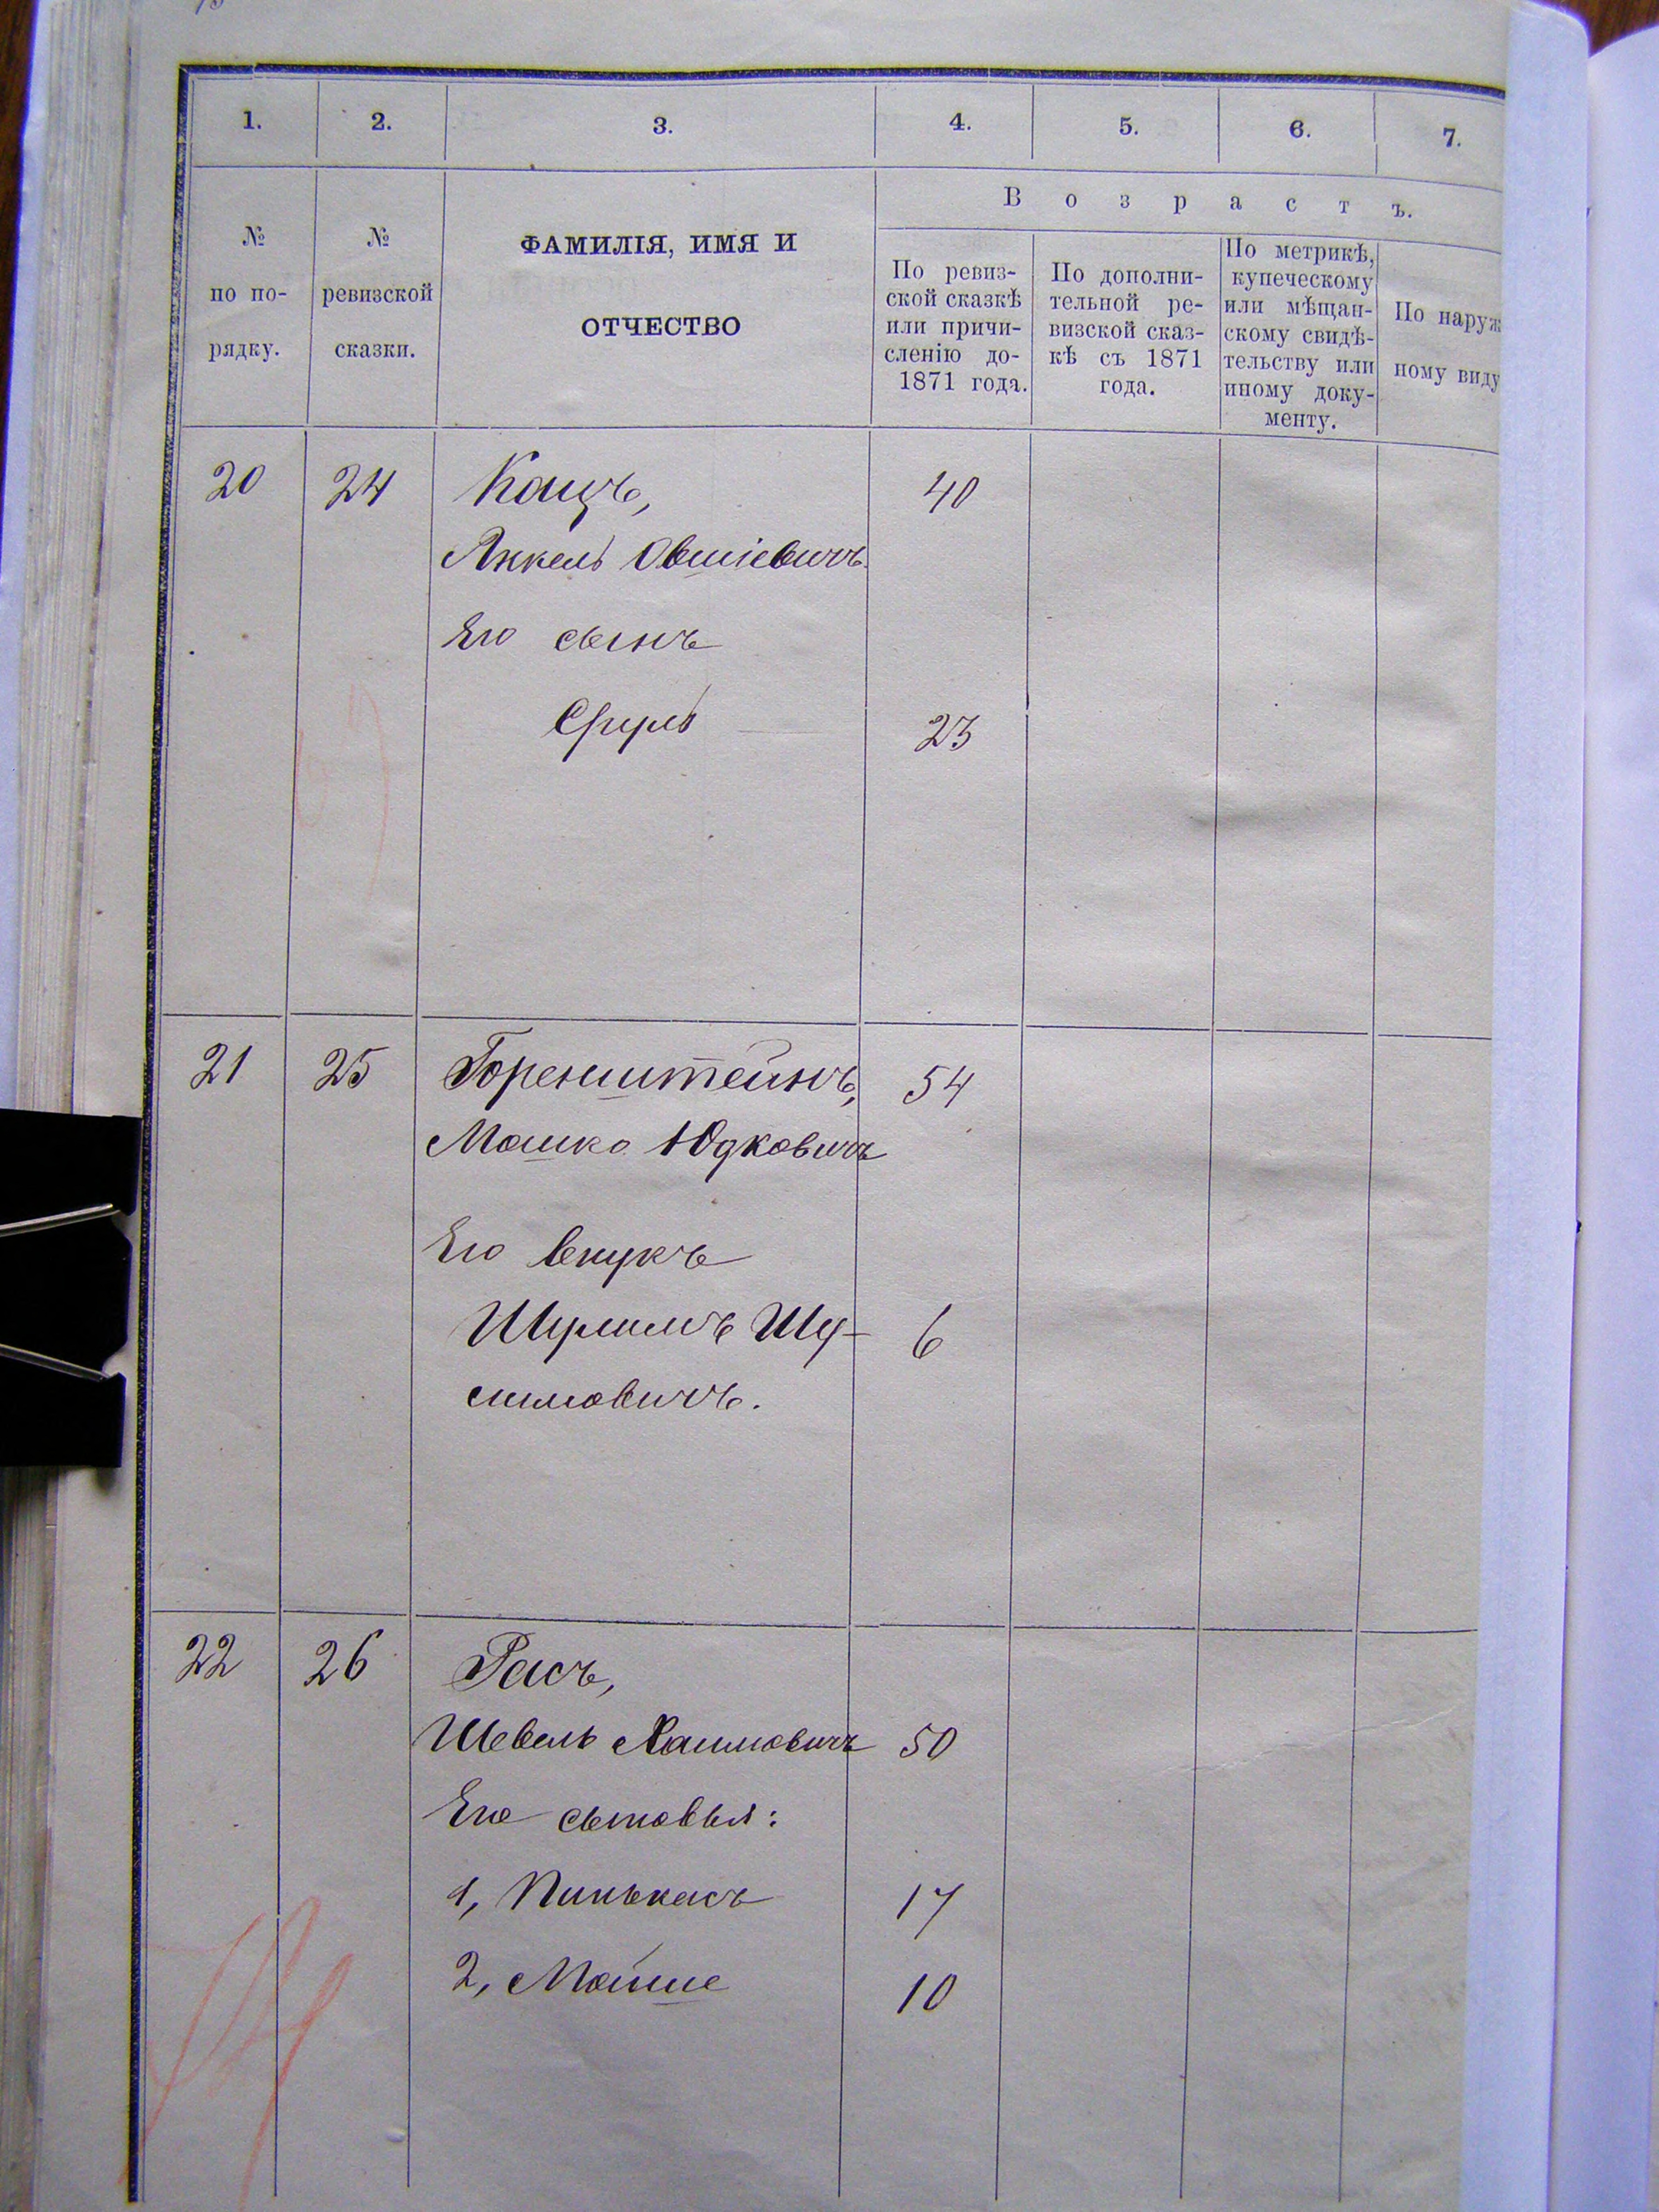 1. 2. 3. 4. 5. 6. 7.
Возрастъ.
№ по по-рядку.
№ ревизской сказки.
ФАМИЛІЯ, ИМЯ И
ОТЧЕСТВО
По ревиз-
ской сказкѣ
или причи-
сленію до-
1871 года.
По дополни-
тельной ре-
визской сказ-
кѣ съ 1871
года.
По метрикѣ,
купеческому
или мѣщан-
скому свидѣ-
тельству или
иному доку-
менту.
По наруж
ному виду
20 24 Кацъ, 40
Янкель Овшіевичъ.
Его сынъ
Сруль 23
21 25 Горенштейнъ, 54
Мошко Юдковичъ
Его внукъ
Шулимъ Шу- 6
симовичъ.
22 26 Расъ,
Шевель Хаимовичъ 50
Его сыновья:
1, Пинькасъ 17
2, Мойше 10